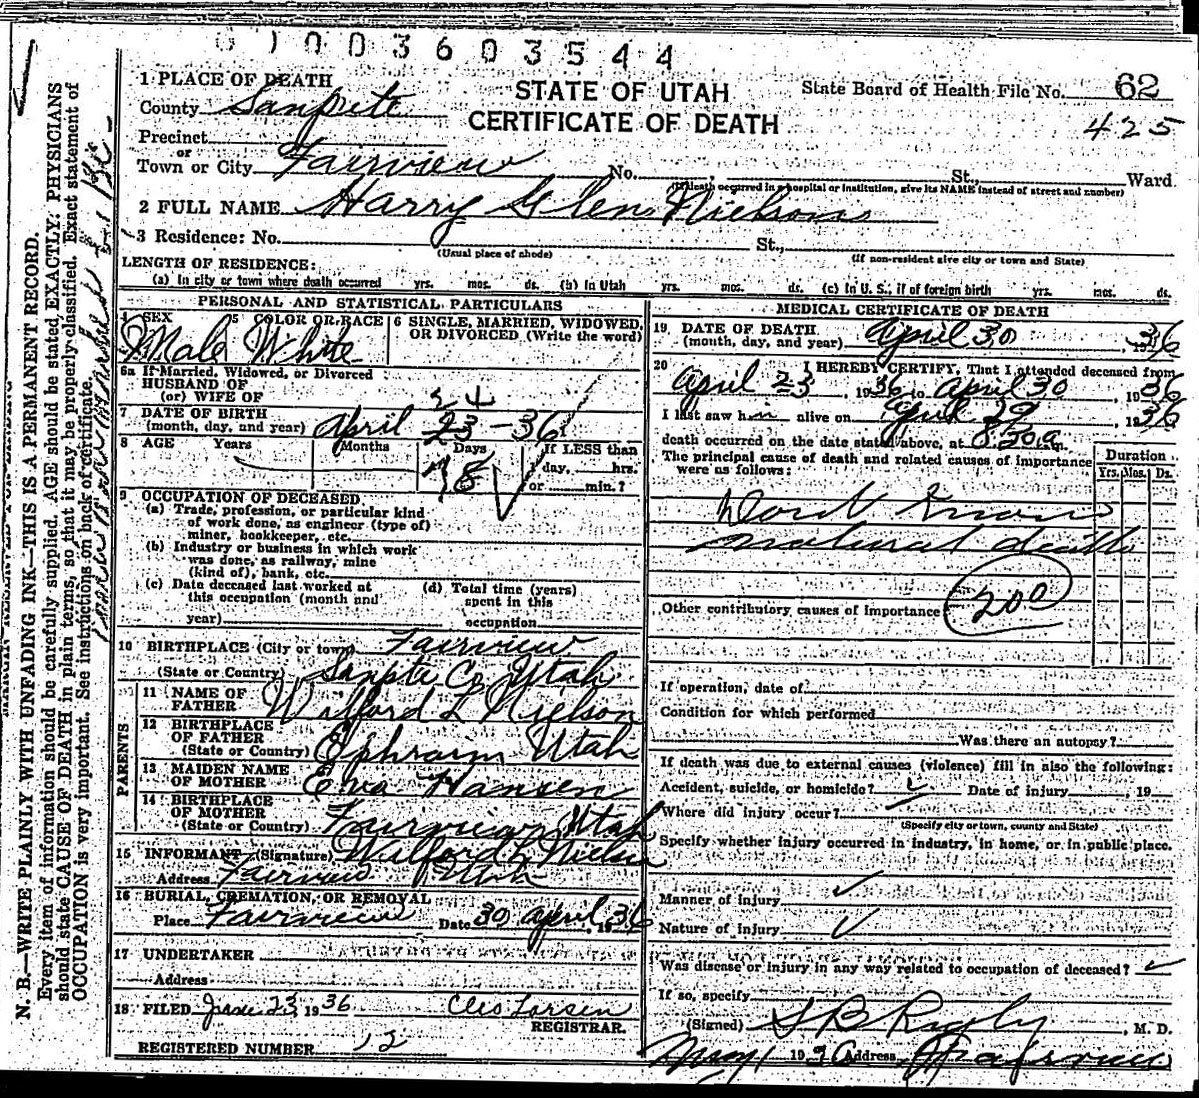 01003603544
STATE OF UTAH
CERTIFICATE OF DEATH
State Board of Health File No. 62
425
1 PLACE OF DEATH
County Sanpete
Precinct
or
Town or City Fairview No. , St., Ward
(If death occurred in a hospital or institution, give its NAME instead of street and number)
2 FULL NAME Harry Glen Nielson
3 Residence: No. St.,
(Usual place of abode) (If non-resident give city or town and State)
LENGTH OF RESIDENCE:
(a) In city or town where death occurred yrs. mos. ds. (b) In Utah yrs. mos. ds. (c) In U. S., if of foreign birth yrs. mos. ds.
PERSONAL AND STATISTICAL PARTICULARS
4 SEX 5 COLOR OR RACE 6 SINGLE, MARRIED, WIDOWED, OR DIVORCED (Write the word)
Male White
6a If Married, Widowed, or Divorced
HUSBAND OF
(or) WIFE OF
24
7 DATE OF BIRTH
(month, day, and year) April 23-36
8 AGE Years Months Days If LESS than
1 day, hrs.
or min.?
8
9 OCCUPATION OF DECEASED
(a) Trade, profession, or particular kind
of work done, as engineer (type of)
miner, bookkeeper, etc.
(b) Industry or business in which work
was done, as railway, mine
(kind of), bank, etc.
(c) Date deceased last worked at
this occupation (month and
year)
(d) Total time (years)
spent in this
occupation
10 BIRTHPLACE (City or town) Fairview
(State or Country) Sanpte Co Utah
PARENTS
11 NAME OF
FATHER Wilford L Nielson
12 BIRTHPLACE
OF FATHER
(State or Country) Ephraim Utah
13 MAIDEN NAME
OF MOTHER Eva Hansen
14 BIRTHPLACE
OF MOTHER
(State or Country) Fairview Utah
15 INFORMANT (Signature) Wilford L Nielson
Address Fairview Utah
16 BURIAL, CREMATION, OR REMOVAL
Place Fairview Date 30 April, 1936
17 UNDERTAKER
Address
18 FILED June 23, 1936 Cleo Larsen
REGISTRAR.
REGISTERED NUMBER 12
MEDICAL CERTIFICATE OF DEATH
19. DATE OF DEATH
(month, day, and year) April 30, 1936
20 I HEREBY CERTIFY, That I attended deceased from
April 23, 1936 to April 30, 1936
I last saw him alive on April 29, 1936
death occurred on the date stated above, at 8.20 a m.
The principal cause of death and related causes of importance
were as follows:
Duration
Yrs. Mos. Ds.
Dont Know
natural death
200
Other contributory causes of importance
If operation, date of
Condition for which performed
Was there an autopsy?
If death was due to external causes (violence) fill in also the following:
Accident, suicide, or homicide? Date of injury , 19
Where did injury occur?
(Specify city or town, county and State)
Specify whether injury occurred in industry, in home, or in public place.
Manner of injury
Nature of injury
Was disease or injury in any way related to occupation of deceased?
If so, specify
(Signed) S B Rigby, M. D.
May 1 1936 Address Fairview
N. B.—WRITE PLAINLY WITH UNFADING INK—THIS IS A PERMANENT RECORD.
Every item of information should be carefully supplied. AGE should be stated EXACTLY. PHYSICIANS
should state CAUSE OF DEATH in plain terms, so that it may be properly classified. Exact statement of
OCCUPATION is very important. See instructions on back of certificate.